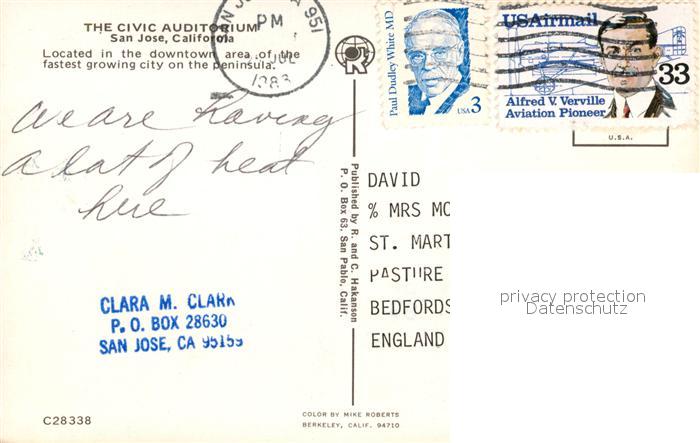 THE CIVIC AUDITORIUM
San Jose, California
Located in the downtown area of the
fastest growing city on the peninsula.
PM
JUL
Paul Dudley White MD
USA 3
USAirmail
33
Alfred V. Verville
Aviation Pioneer
U.S.A.
We are having
a lot of heat
here
Published by R. and C. Hakanson
P. O. Box 63, San Pablo, Calif.
DAVID
% MRS MC
ST. MART
PASTURE
BEDFORDS
ENGLAND
privacy protection
Datenschutz
CLARA M. CLARK
P. O. BOX 28630
SAN JOSE, CA 95159
C28338
COLOR BY MIKE ROBERTS
BERKELEY, CALIF. 94710